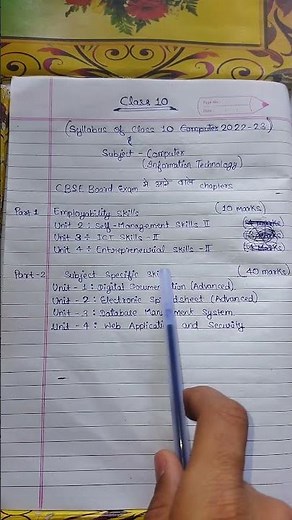 Class 10
(Syllabus of Class 10 Computer 2022-23)
Subject - Computer
(Information Technology)
CBSE Board Exam में आने वाले chapters
Part 1 Employability Skills (10 marks)
Unit 2 : Self-Management Skills II
Unit 3 : ICT Skills - II
Unit 4 : Entrepreneurial Skills - II
Part-2 Subject Specific Skills (40 marks)
Unit - 1 : Digital Documentation (Advanced)
Unit - 2 : Electronic Spreadsheet (Advanced)
Unit - 3 : Database Management System
Unit - 4 : Web Application and Security